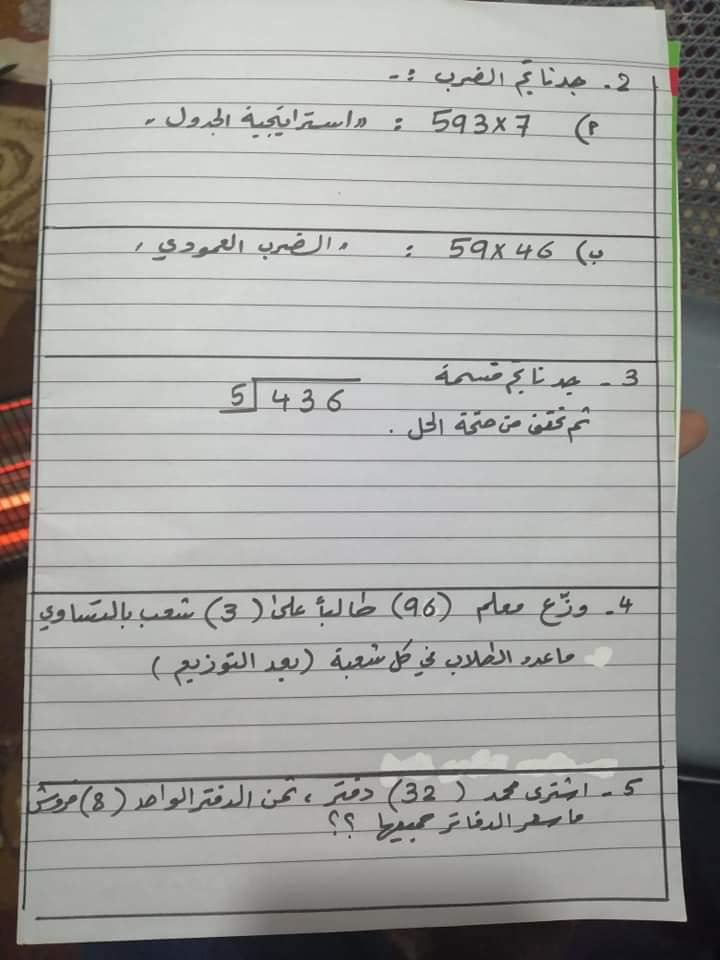 2. جد ناتج الضرب :-
أ) 593×7 : "استراتيجية الجدول"
ب) 59×46 : "الضرب العمودي"
3- جد ناتج قسمة 5 436
ثم تحقق من صحة الحل .
4- وزّع معلم (96) طالباً على (3) شعب بالتساوي
ما عدد الطلاب في كل شعبة (بعد التوزيع)
5- اشترى محمد (32) دفتر ، ثمن الدفتر الواحد (8) قروش
ما سعر الدفاتر جميعها ؟؟